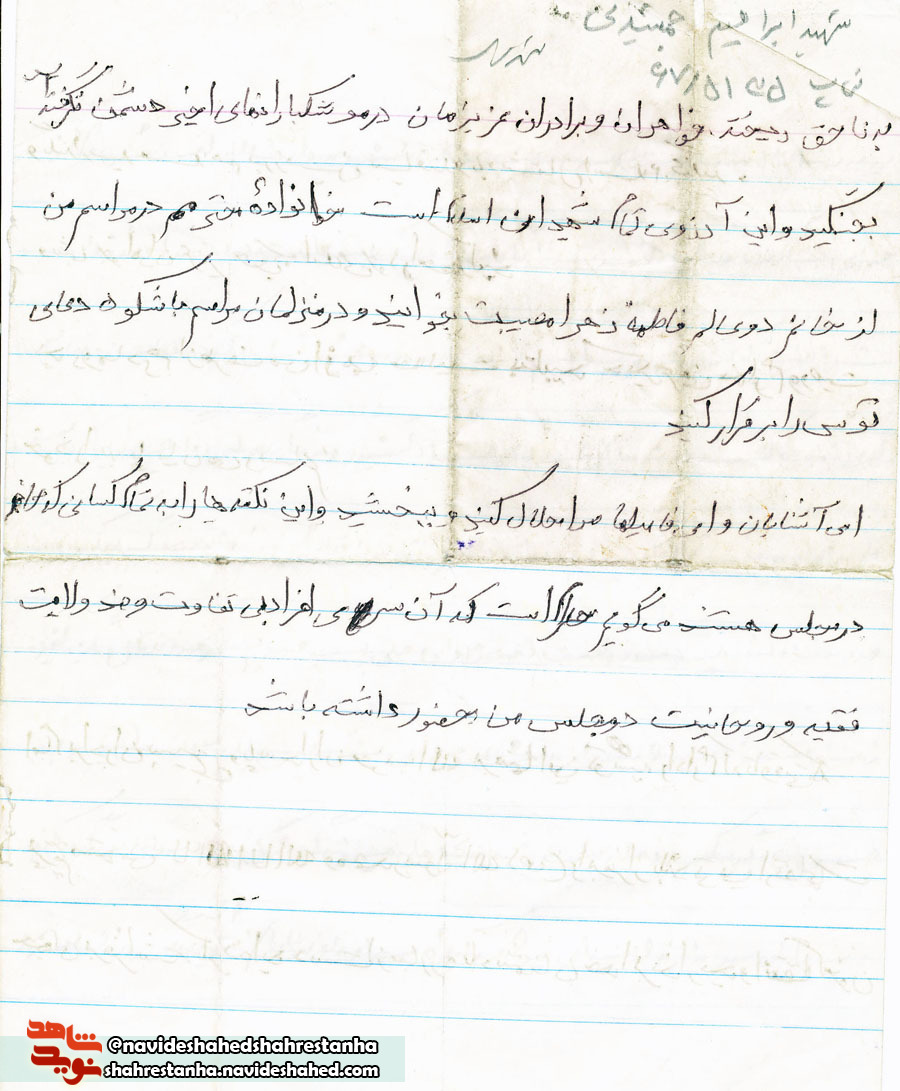 شهید ابراهیم جمشیدی
به ناحق ریختند. خواهران و برادران عزیزمان در موشکبارانهای اخیر دشمن
بجنگید و این آرزوی تمام شهیدان است خانوادهٔ محترم در مراسم من
از خانم دوی عالم فاطمهٔ زهرا مصیبت بخوانید و در منزلمان مراسم باشکوه دعای
توسل را برقرار کنید
ای آشنایان و ای فامیلها مرا حلال کنید و ببخشید و این نکته ها را به تمام کسانی که
در مجلس هستند می گویم حرام است که آن سری افراد بی تفاوت و ضد ولایت
فقیه و روحانیت در مجلس من حضور داشته باشد
شاهد
نوید
@navideshahedshahrestanha
shahrestanha.navideshahed.com